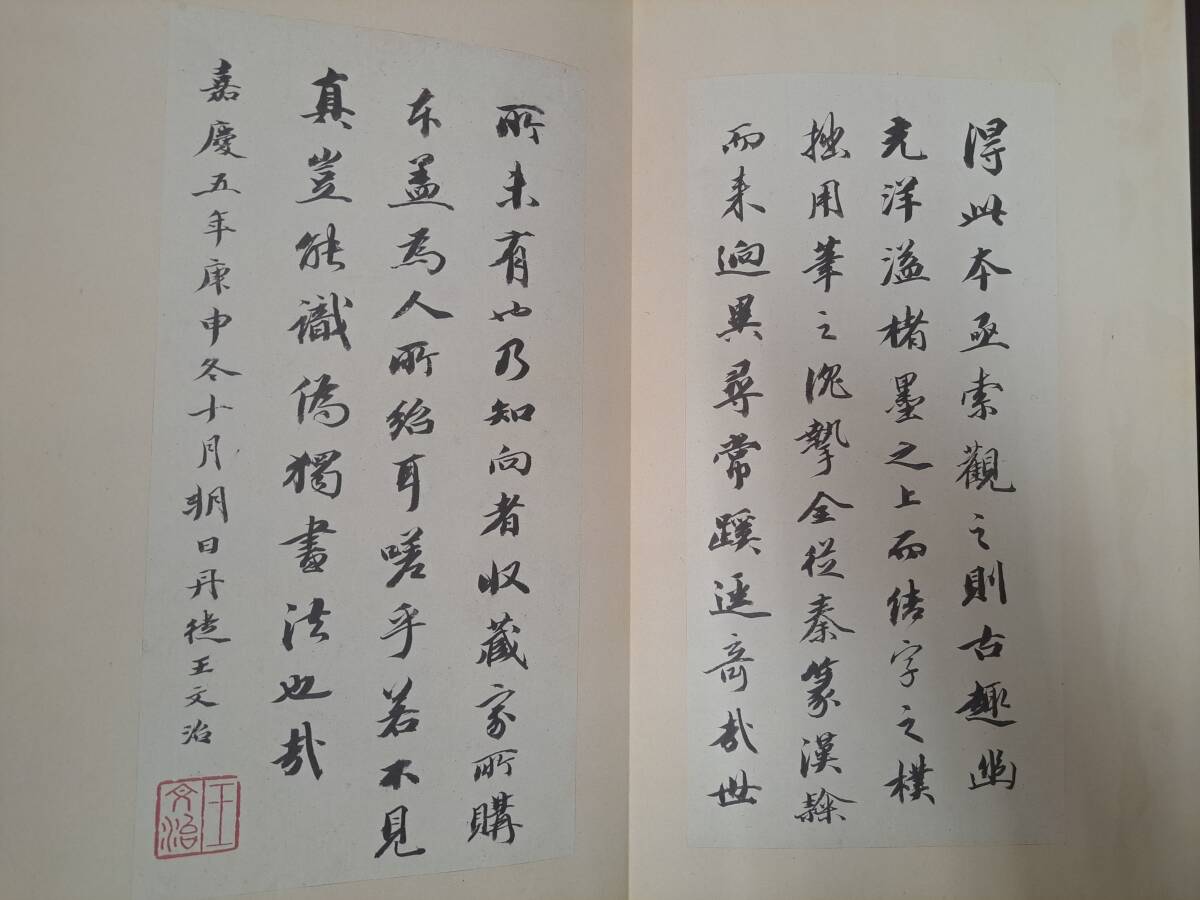 得此本亟索觀之則古趣幽
光洋溢楮墨之上而結字之樸
拙用筆之沈摯全從秦篆漢隸
而来逈異尋常蹊逕奇哉世
所未有也乃知向者收藏家所購
本蓋為人所紿耳嗟乎若不見
真豈能識偽獨書法也哉
嘉慶五年庚申冬十月朔日丹徒王文治
王文治